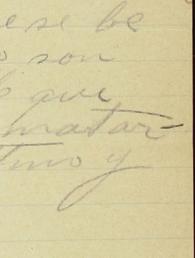 ese be
son
que
matar-
tino y